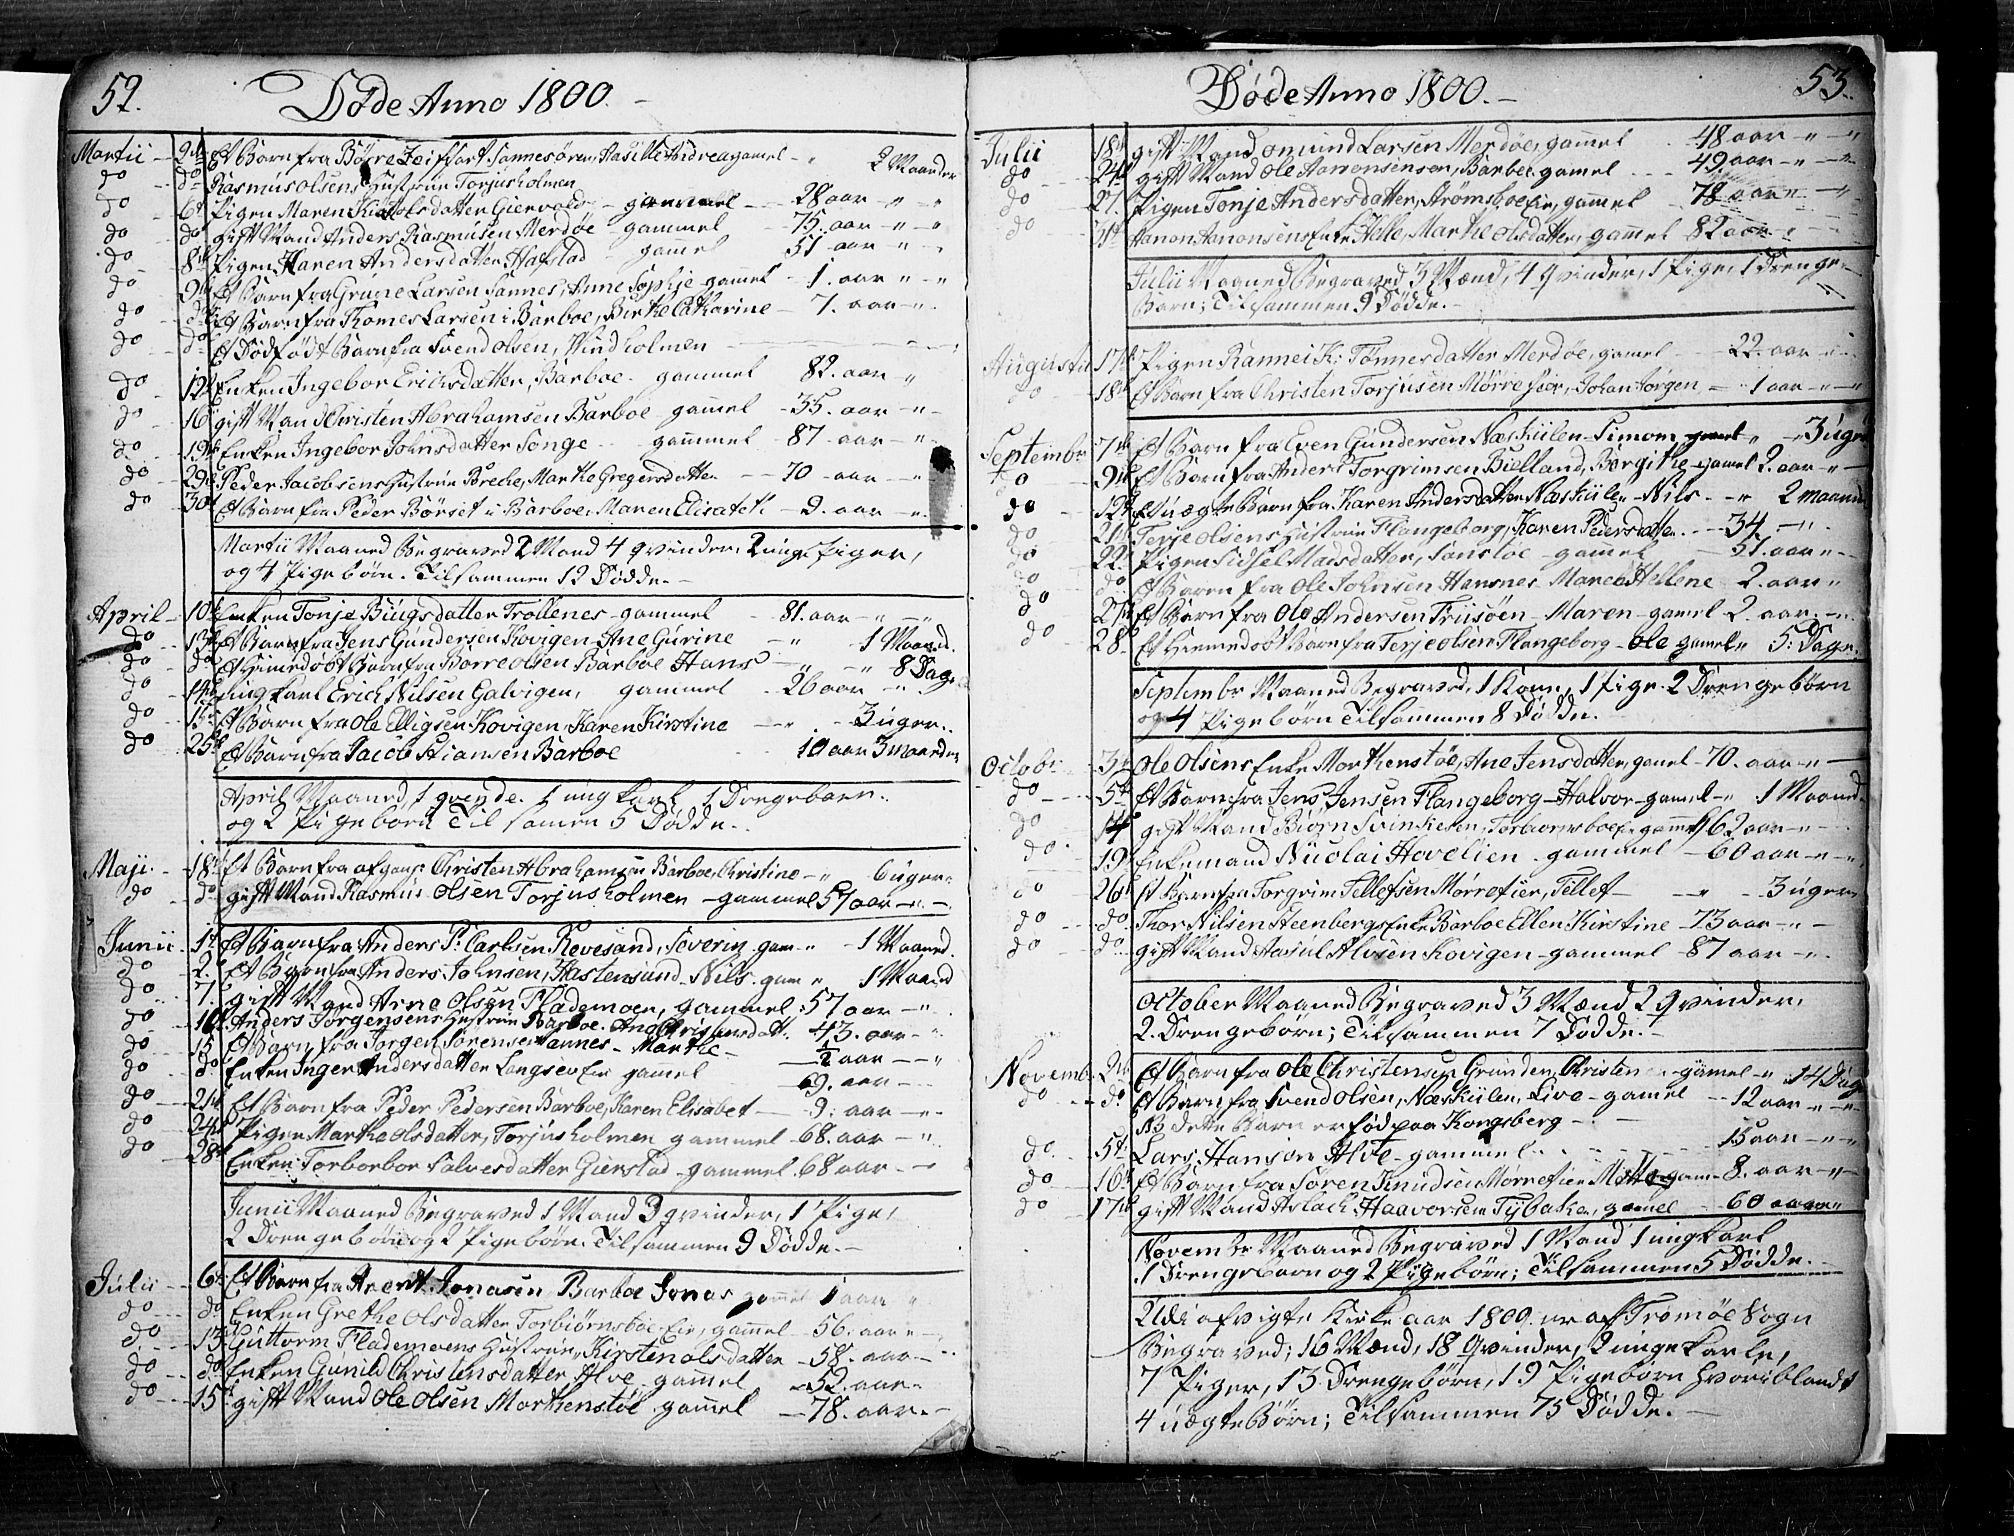 52.
Døde Anno 1800.
Martii 2d Et Barn fra Børre Sannesøren, Andrea gamel 2 Maaneder
do do Rasmus Olsens Hustrue Torjusholmen
do 6t Pigen Maren Giervold gammel 28 aar
do do gift Mand Anders Rasmusen Merdøe gammel 75. aar
do 8d Pigen Karen Andersdatter Hafstad gamel 51 aar
do 9d Et Barn fra Grune Larsen Sannes, Anne Sophje gammel 1. aar
do do Et Barn fra Thomes Larsen i Barboe, Birthe Catharine 7. aar
do do Et Dødfødt Barn fra Svend Olsen, Vindholmen
do 12t Enken Ingebor Erichsdatter, Barboe. gammel 82. aar
do 16 gift Mand Christen Abrahamsen Barboe gammel 35. aar
do 19d Enken Ingebor Johnsdatter Songe gammel 87 aar
do 29d Peder Jacobsens Hustrue Breche, Marthe Gregersdatter 70 aar
do 30t Et Barn fra Peder Børset i Barboe. Maren Elisabeth 9. aar
Martii Maaned Begraved 2 Mand 4 qvinder. 2 unge Piger,
og 4 Pigebørn. Tilsammen 12 Dødde.
April 10d Enken Tonje Trollenes gammel 81. aar
do 13d Et Barn fra Jens Gundersen Kovigen Ane Gurine 1 Maaned.
do do Et Hiemedøbt Barn fra Børre Olsen Barboe Hans 8 Dage
do 14d ung karl Erich Nilsen Galvigen, gammel 26 aar
do 15d Et Barn fra Ole Elligsen Kovigen, Karen Kirstine 3 uger.
do 25d Et Barn fra Jacob Stiansen Barboe 10 aar 3 maander
April Maaned, 1 qvende. 1 ung karl, 1 Drengebarn.
og 2 Pigebørn Til samen 5 Dødde.
Maji. 18d Et Barn fra afgang: Christen Abrahamsen Barboe, Christine 6 uger
do do gift Mand Rasmus Olsen Torjusholmen gammel 57 aar
Junii 1t Et Barn fra Anders P: Carlsen Revesand, Severin gam 1 Maaned.
do 2. Et Barn fra Anders Johnsen, Hastensund Nils. gam 1 Maaned
do 7. gift Mand Arne Olsen Flademoen, gammel 57 aar
do 10d Anders Jørgensens Hustrue Barboe. Ane Christensdatt. 43. aar
do 15 Et Barn fra Jørgen Sørensen Sannes Marthe 1/2 aar
do do Enken Inger Andersdatter Langsev Eie gamel 69. aar
do 21d Et Barn fra Peder Pedersen Barboe, Karen Elisabet 9: aar
do 24d Pigen Marthe Olsdatter, Torjusholmen gammel 68. aar
do 28d Enken Torborbor Salvesdatter Gierstad gammel 68 aar
Junii Maaned Begraved 1 Mand 3 qvinder, 1 Pige,
2 Drengebørn og 2 Pigebørn. Tilsammen 9 Dødde.
Julii 6t Et Barn fra Arent Jonasen Barboe Jonas gammel 1 aar
do do Enken Grethe Olsdatter Torbiørnsboe Eie, gammel 56. aar
do 13 Guttorm Flademoens Hustrue, Kirsten Olsdatter 58. aar
do do Enken Gunild Christensdatter Alve gammel 52. aar
do 15d gift Mand Ole Olsen Morthenstøe gammel 78. aar
Døde Anno 1800.
53.
Julii 18d gift Mand Omund Larsen Merdøe, gammel 48 aar
do 24d gift Mand Ole Aanonsensen, Barboe gamel 49 aar
do 27. Pigen Tonje Andersdatter, Strømsboe Eie, gammel 78 aar
do 31t Aanon Aanonsens Enke Helle, Marthe Olsdatter, gammel 82 aar
Julii Maaned Begraved 3 Mænd, 4 qvinder, 1 Pige, 1 Drenge-
Barn; Tilsammen 9 Dødde.
Augusti 17d Pigen Rannei K: Tønnesdatter Merdøe, gamel 22. aar
do 18d Et Barn fra Christen Torjusen Mørrefier, Johan Jørgen 1 aar
Septembr 7d Et Barn fra Even Gundersen Næskiilen Simon gamel 3 uger
do 9d Et Barn fra Anders Torgrimsen Bielland, Bergithe gamel 2. aar
do 12d Et uægte Barn fra Karen Andersdatter Næskiilen Nils 2 maaned
do 21d Terje Olsens Hustrue Flangeborg, Karen Pedersdatter 34.
do 22. Pigen Sidsel Madsdatter, gamel 51. aar
do do Et Barn fra Ole Johnsen Hansnes Maren Hellene 2. aar
do 27d Et Barn fra Ole Andersen Friisøen Maren gamel 2. aar
do 28. Et Hiemedøbt Barn fra Terje Olsen Flangeborg Ole gamel 5: Dage.
Septembr Maaned Begraved, 1 Kone, 1 Pige. 2 Drengebørn
og 4 Pigebørn Tilsammen 8 Dødde.
Octobr 3d Ole Olsens Enke Morthenstøe, Ane Jensdatter, gamel 70. aar
do 5t Et Barn fra Jens Jensen Flangeborg Halvor gamel 1 Maaned
do 14 gift Mand Biørn Svinkesen, Torbiørnsboe Eie gammel 62 aar
do 19 Enkemand Nicolai Hovelien gammel 60 aar
do 26d Et Barn fra Torgrim Tellefsen Mørrefier, Tellef 3 uger
do do Thor Nilsen Steenbergs Enke Barboe Ellen Kirstine 73 aar
do do gift Mand Aasul Alvsen Kovigen gammel 87 aar
October Maaned Begraved 3 Mænd 2 qvinder,
2 Drengebørn; Tilsammen 7 Dødde.
Novemb. 2d Et Barn fra Ole Christensen Grunden, Christen gamel 14 Dage
do do Et Barn fra Svend Olsen, Næskiilen, Live gamel 12 aar
NB dette Barn er fød paa Kongsberg
do 5t Lars Hansen Alve gammel 15 aar
do 16d Et Barn fra Søren Knudsen Mørrefier Mette gam 8. aar
do 17d gift Mand Aslach Haavorsen Tybaken, gamel 60 aar
Novembr Maaned Begraved 1 Mand 1 ung karl
1 Drengebarn og 2 Pigebørn; Tilsammen 5 Dødde.
Udi afvigte Kirke aar 1800 er af Tromøe Sogn
Begraved; 16 Mænd, 18 qvinder, 2 unge karle,
7 Piger, 13 Drengebørn, 19 Pigebørn hvoriblandt
4 uægte Børn; Tilsammen 75 Dødde.